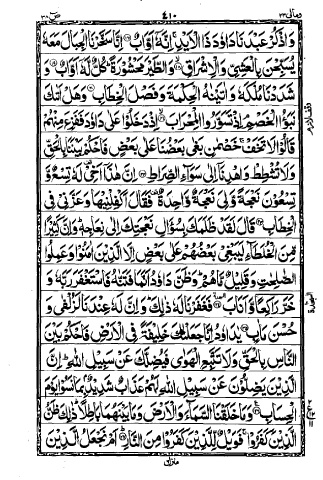 ومالی ۲۳ ۴۱۰ ص ۳۸
وَاذْكُرْ عَبْدَنَا دَاوٗدَ ذَا الْاَيْدِ ۚ اِنَّهٗٓ اَوَّابٌ ۝ اِنَّا سَخَّرْنَا الْجِبَالَ مَعَهٗ
يُسَبِّحْنَ بِالْعَشِيِّ وَالْاِشْرَاقِ ۝ وَالطَّيْرَ مَحْشُوْرَةً ؕ كُلٌّ لَّهٗٓ اَوَّابٌ ۝ وَ
شَدَدْنَا مُلْكَهٗ وَاٰتَيْنٰهُ الْحِكْمَةَ وَفَصْلَ الْخِطَابِ ۝ وَهَلْ اَتٰىكَ
نَبَؤُا الْخَصْمِ ۘ اِذْ تَسَوَّرُوا الْمِحْرَابَ ۝ اِذْ دَخَلُوْا عَلٰى دَاوٗدَ فَفَزِعَ مِنْهُمْ
قَالُوْا لَا تَخَفْ ۚ خَصْمٰنِ بَغٰى بَعْضُنَا عَلٰى بَعْضٍ فَاحْكُمْ بَيْنَنَا بِالْحَقِّ
وَلَا تُشْطِطْ وَاهْدِنَآ اِلٰى سَوَآءِ الصِّرَاطِ ۝ اِنَّ هٰذَآ اَخِيْ ۫ لَهٗ تِسْعٌ وَّ
تِسْعُوْنَ نَعْجَةً وَّلِيَ نَعْجَةٌ وَّاحِدَةٌ ۫ فَقَالَ اَكْفِلْنِيْهَا وَعَزَّنِيْ فِي
الْخِطَابِ ۝ قَالَ لَقَدْ ظَلَمَكَ بِسُؤَالِ نَعْجَتِكَ اِلٰى نِعَاجِهٖ ؕ وَاِنَّ كَثِيْرًا
مِّنَ الْخُلَطَآءِ لَيَبْغِيْ بَعْضُهُمْ عَلٰى بَعْضٍ اِلَّا الَّذِيْنَ اٰمَنُوْا وَعَمِلُوا
الصّٰلِحٰتِ وَقَلِيْلٌ مَّا هُمْ ؕ وَظَنَّ دَاوٗدُ اَنَّمَا فَتَنّٰهُ فَاسْتَغْفَرَ رَبَّهٗ وَ
خَرَّ رَاكِعًا وَّاَنَابَ ۝ فَغَفَرْنَا لَهٗ ذٰلِكَ ؕ وَاِنَّ لَهٗ عِنْدَنَا لَزُلْفٰى وَ
حُسْنَ مَاٰبٍ ۝ يٰدَاوٗدُ اِنَّا جَعَلْنٰكَ خَلِيْفَةً فِي الْاَرْضِ فَاحْكُمْ بَيْنَ
النَّاسِ بِالْحَقِّ وَلَا تَتَّبِعِ الْهَوٰى فَيُضِلَّكَ عَنْ سَبِيْلِ اللّٰهِ ؕ اِنَّ
الَّذِيْنَ يَضِلُّوْنَ عَنْ سَبِيْلِ اللّٰهِ لَهُمْ عَذَابٌ شَدِيْدٌۢ بِمَا نَسُوْا يَوْمَ
الْحِسَابِ ۝ وَمَا خَلَقْنَا السَّمَآءَ وَالْاَرْضَ وَمَا بَيْنَهُمَا بَاطِلًا ؕ ذٰلِكَ ظَنُّ
الَّذِيْنَ كَفَرُوْا ۚ فَوَيْلٌ لِّلَّذِيْنَ كَفَرُوْا مِنَ النَّارِ ۝ اَمْ نَجْعَلُ الَّذِيْنَ